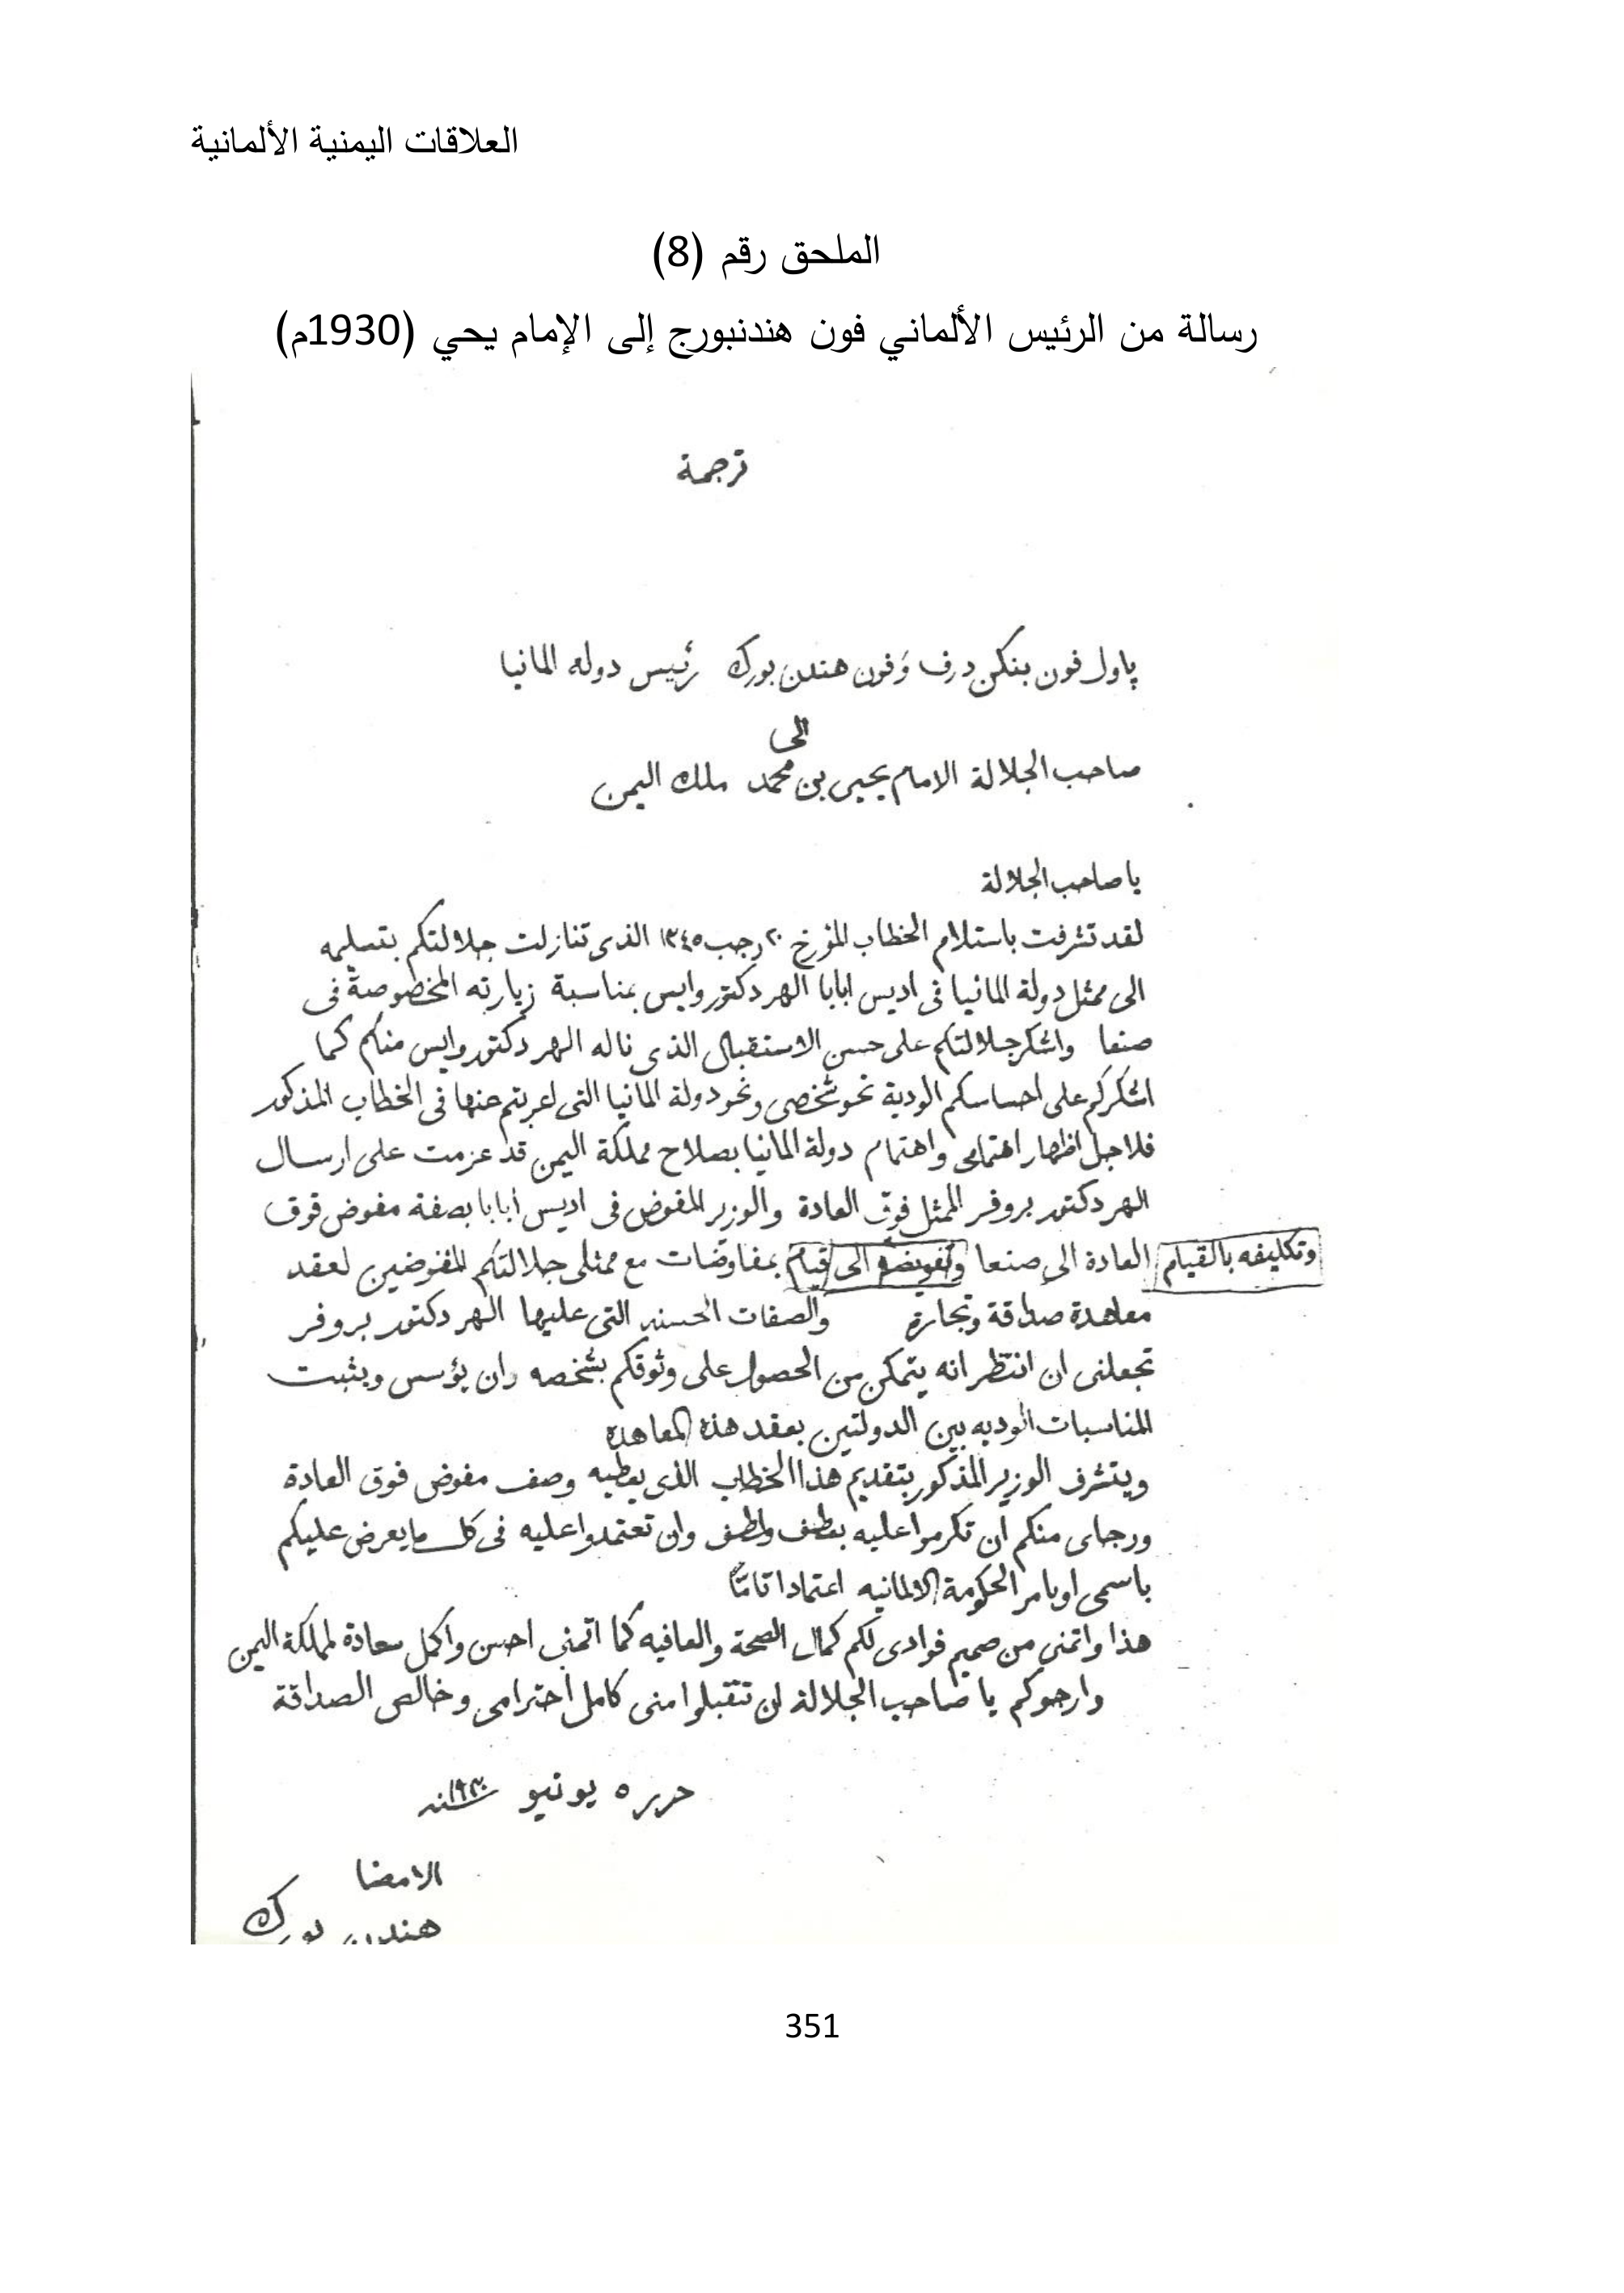 العلاقات اليمنية الألمانية
الملحق رقم (8)
رسالة من الرئيس الألماني فون هندنبورج إلى الإمام يحي (1930م)
ترجمة
پاول فون بنكن درف وَفون هندن بورك رئيس دوله المانيا
الى
صاحب الجلالة الامام يحيى بن محمد ملك اليمن
يا صاحب الجلالة
لقد تشرفت باستلام الخطاب المؤرخ ٢٠ رجب ١٣٤٥ الذى تنازلت جلالتكم بتسليمه
الى ممثل دولة المانيا فى اديس ابابا الهر دكتور وايس بمناسبة زيارته المخصوصة فى
صنعا واشكر جلالتكم على حسن الاستقبال الذى ناله الهر دكتور وايس منكم كما
اشكركم على احساسكم الودية نحو شخصى ونحو دولة المانيا التى اعربتم عنها فى الخطاب المذكور
فلاجل اظهار اهتمامى واهتمام دولة المانيا بصلاح مملكة اليمن قد عزمت على ارسال
الهر دكتور بروفر الممثل فوق العادة والوزير المفوض فى اديس أبابا بصفة مفوض فوق
وتكليفه بالقيام العادة الى صنعا وتفويضه الى قيام بمفاوضات مع ممثلى جلالتكم المفوضين لعقد
معاهدة صداقة وتجارة والصفات الحسنه التى عليها الهر دكتور بروفر
تجعلنى ان انتظر انه يتمكن من الحصول على وثوقكم بشخصه وان يؤسس ويثبت
المناسبات الوديه بين الدولتين بعقد هذه المعاهدة
ويتشرف الوزير المذكور بتقديم هذا الخطاب الذى يعطيه وصف مفوض فوق العادة
ورجاى منكم ان تكرموا عليه بعطف ولطف وان تعتمدوا عليه فى كل ما يعرض عليكم
باسمى او بامر الحكومة الالمانيه اعتمادا تامًا
هذا واتمنى من صميم فوادى لكم كمال الصحة والعافيه كما اتمنى احسن واكمل سعادة لمملكة اليمن
وارجوكم يا صاحب الجلالة ان تتقبلوا منى كامل أحترامى وخالص الصداقة
حرر ٥ يونيو سنه ١٩٣٠
الامضا
هندن بورك
351